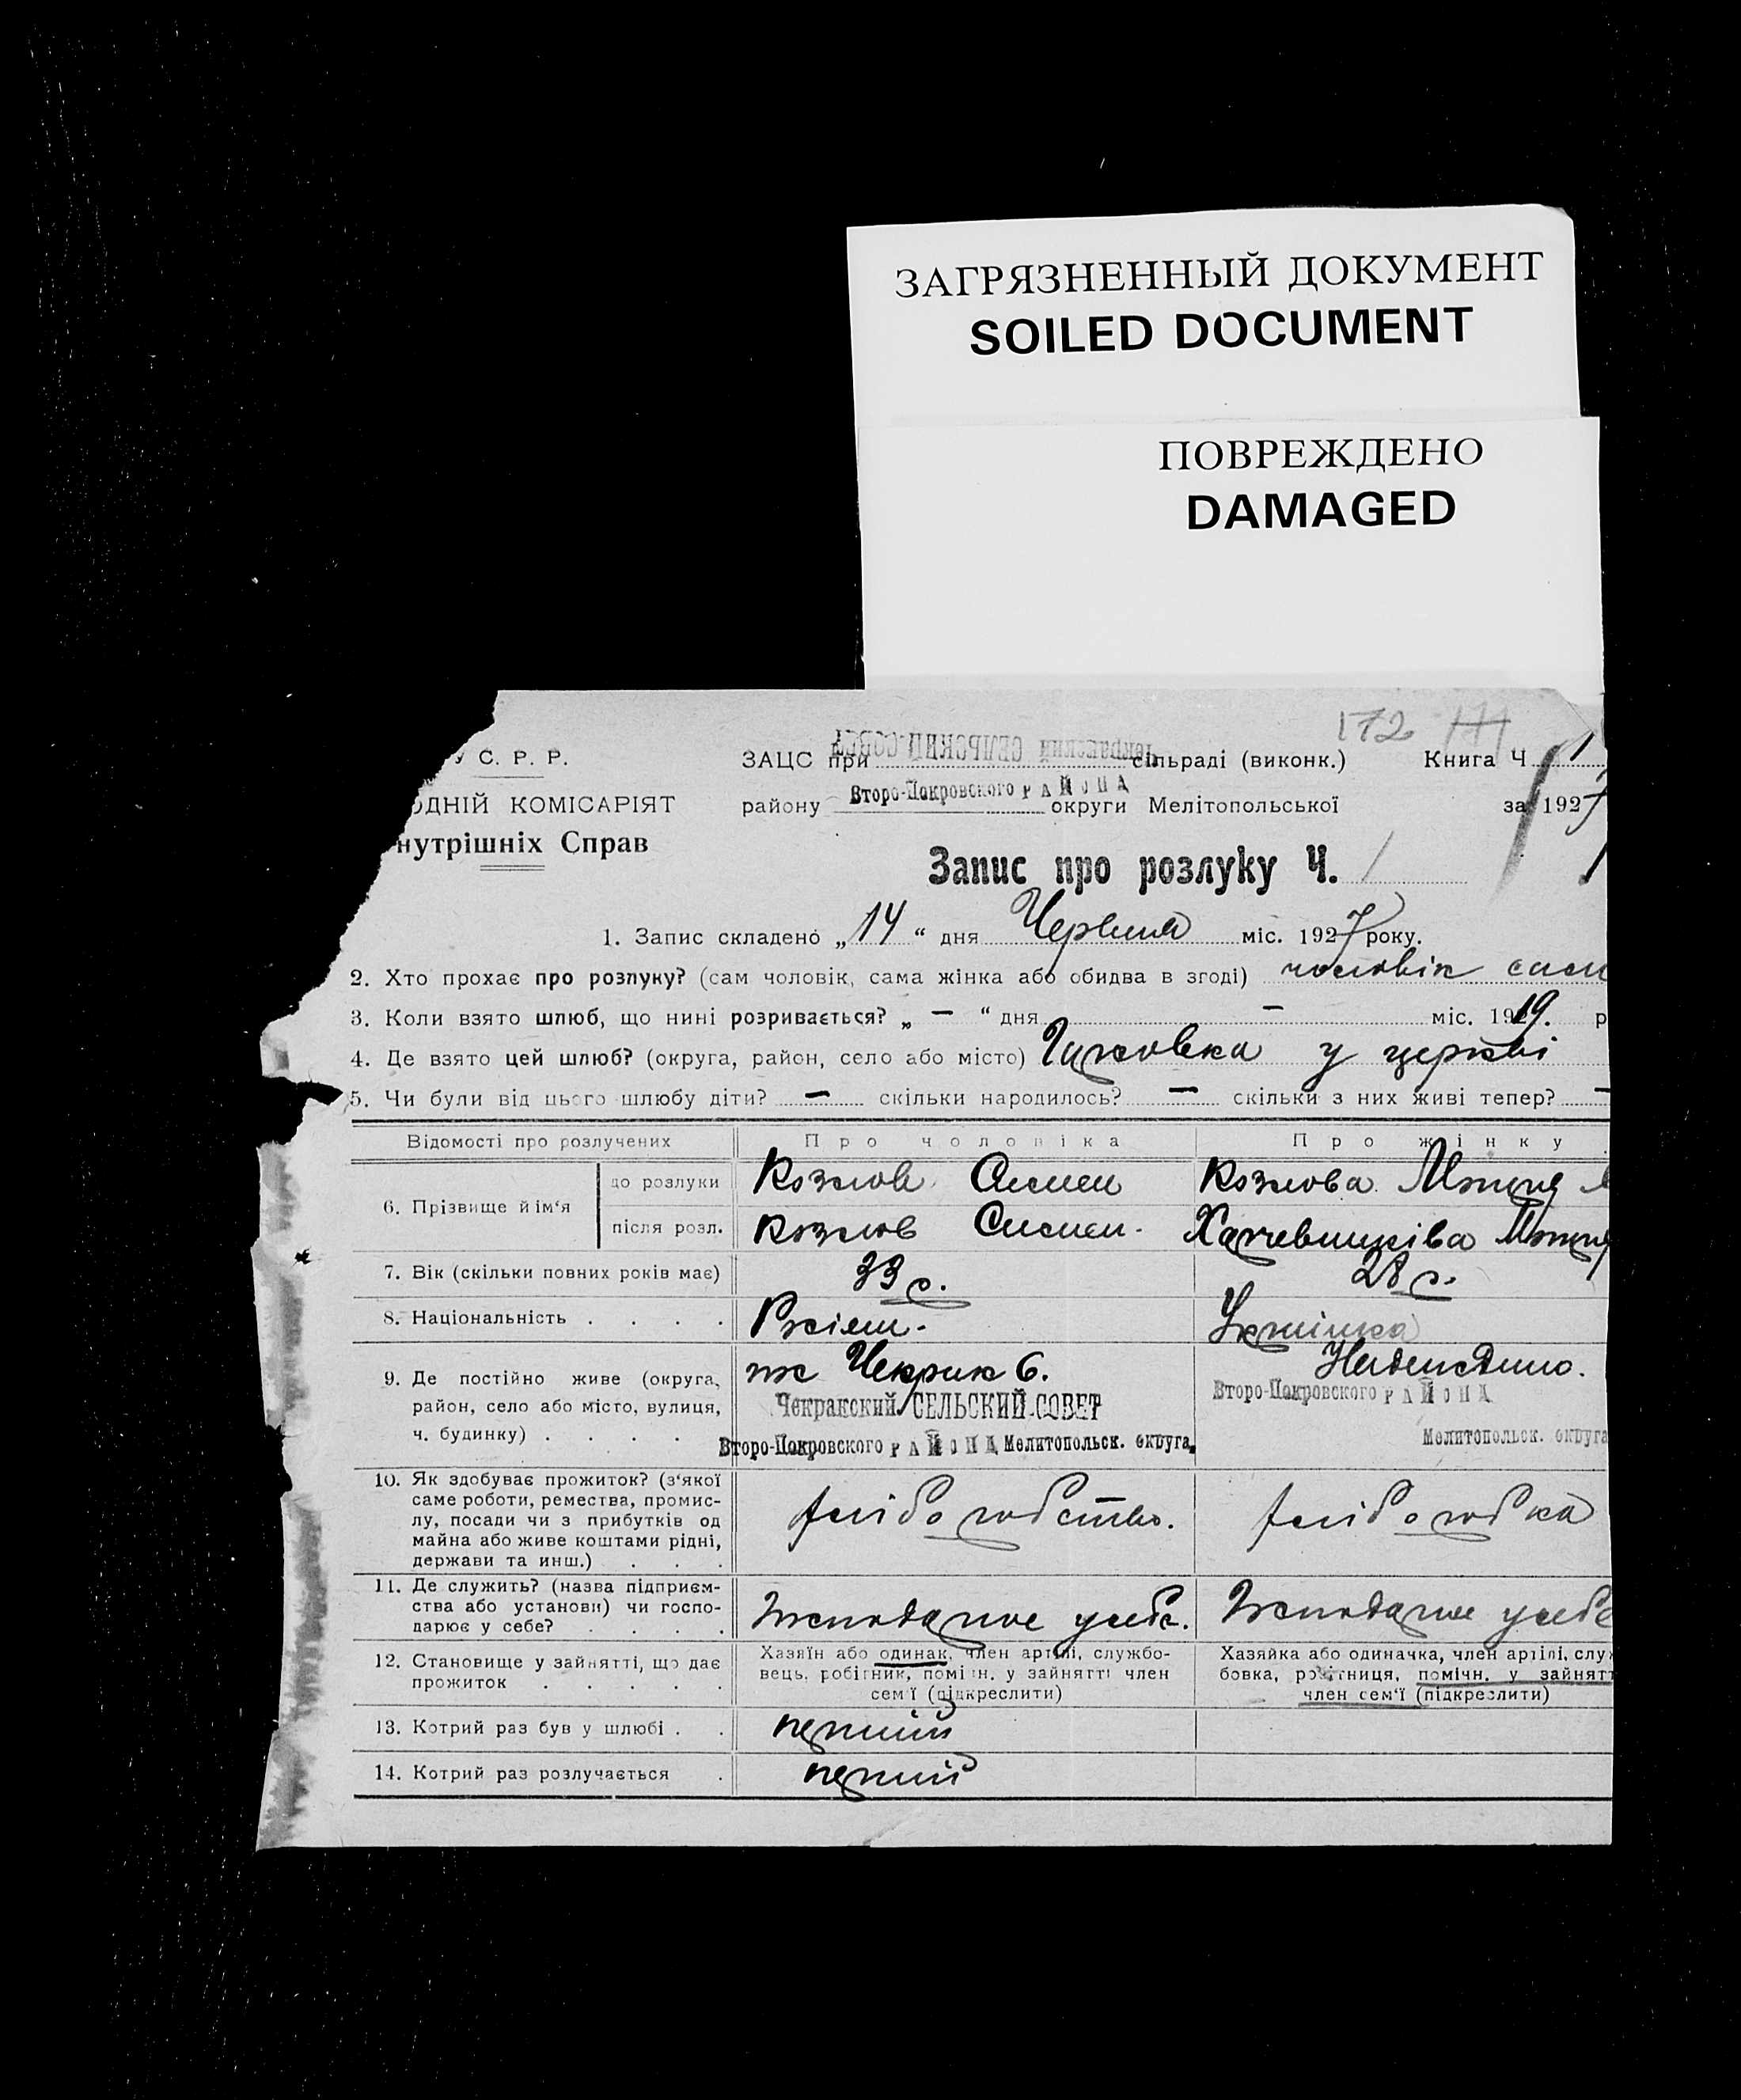 ЗАГРЯЗНЕННЫЙ ДОКУМЕНТ
SOILED DOCUMENT
ПОВРЕЖДЕНО
DAMAGED
172
У С. Р. Р.
ОДНІЙ КОМІСАРІЯТ
нутрішніх Справ
ЗАЦС при Чекракский СЕЛЬСКИЙ СОВЕТ сільраді (виконк.) Книга Ч. 1
району Второ-Покровского РАЙОНА округи Мелітопольської за 1927
Запис про розлуку Ч. 1
1. Запис складено „14“ дня Червня міс. 1927 року.
2. Хто прохає про розлуку? (сам чоловік, сама жінка або обидва в згоді) чоловік сам
3. Коли взято шлюб, що нині розривається? „ — “ дня — міс. 1919. р
4. Де взято цей шлюб? (округа, район, село або місто) у церкві
5. Чи були від цього шлюбу діти? — скільки народилось? — скільки з них живі тепер? —
Відомості про розлучених
Про чоловіка
Про жінку
6. Прізвище й ім‘я
до розлуки
Козлов Семен
Козлова
після розл.
Козлов Семен.
7. Вік (скільки повних років має)
33 р.
28 р.
8. Національність . . . .
9. Де постійно живе (округа, район, село або місто, вулиця, ч. будинку) . . . .
Чекрак 6.
Чекракский СЕЛЬСКИЙ СОВЕТ
Второ-Покровского РАЙОНА Мелитопольск. округа.
Второ-Покровского РАЙОНА
Мелитопольск. округа
10. Як здобуває прожиток? (з‘якої
саме роботи, ремества, промис-
лу, посади чи з прибутків од
майна або живе коштами рідні,
держави та инш.) . . .
хліборобство.
хліборобка
11. Де служить? (назва підприєм-
ства або установи) чи госпо-
дарює у себе? . . . .
у себе.
у себе
12. Становище у зайнятті, що дає
прожиток . . . . .
Хазяїн або одинак, член артілі, службо-
вець, робітник, помічн. у зайнятті член
сем‘ї (підкреслити)
Хазяйка або одиначка, член артілі, служ
бовка, робітниця, помічн. у зайнятт
член сем‘ї (підкреслити)
13. Котрий раз був у шлюбі . .
перший
14. Котрий раз розлучається .
перший